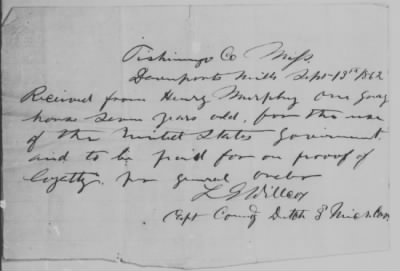 Tishimingo Co Miss.
Davenports Mills Sept 13th 1862
Received from Henry Murphy one gray
horse seven years old, for the use
of the United States Goverment
and to be paid for on proof of
loyalty, per general order
L G Willcox
Capt Comdg Detch 3 Mich Cav